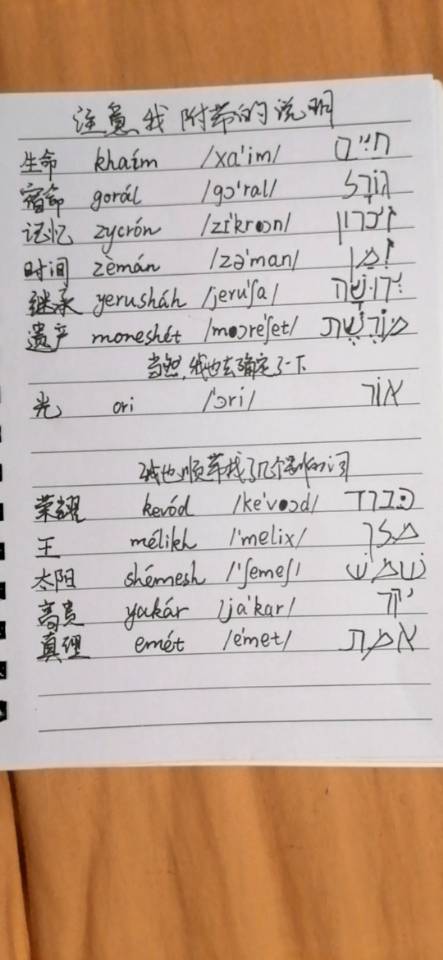 注意我附带的说明
生命 khaím /xa'im/ חיים
宿命 gorál /gɔ'ral/ גורל
记忆 zycrón /zi'krɔn/ זיכרון
时间 zèmán /zə'man/ זמן
继承 yerusháh /jeru'ʃa/ ירושה
遗产 moneshét /mɔre'ʃet/ מורשת
当然,我也去确定了一下
光 ori /'ɔri/ אור
我也顺带找了几个别的词
荣耀 kevód /ke'vɔd/ כבוד
王 mélikh /'melix/ מלך
太阳 shémesh /'ʃemeʃ/ שמש
高贵 yakár /ja'kar/ יקר
真理 emét /e'met/ אמת